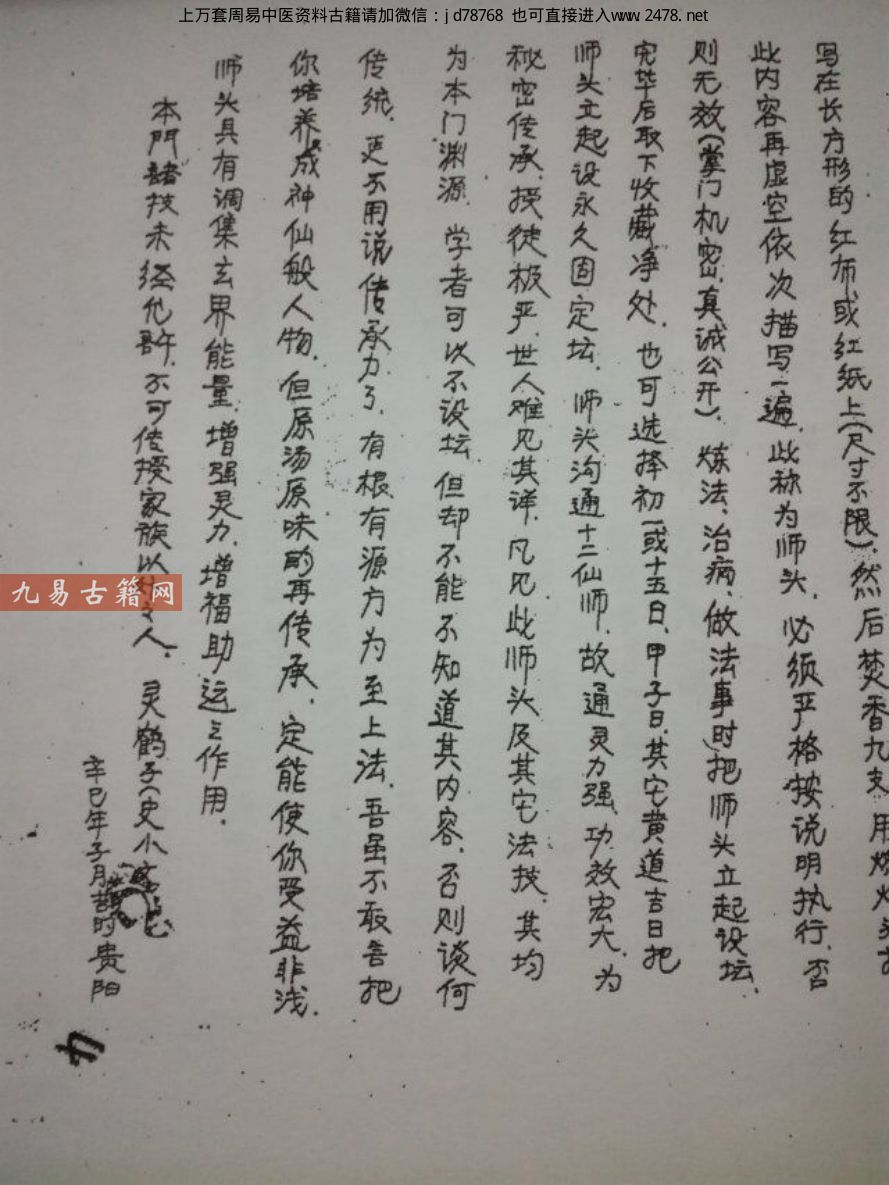 上万套周易中医资料古籍请加微信：jd78768 也可直接进入www.2478.net
写在长方形的红布或红纸上（尺寸不限），然后焚香九支，用燃
此内容再虚空依次描写一遍，此称为师头，必须严格按说明执行，否
则无效（掌门机密，真诚公开），炼法、治病、做法事时把师头立起设坛，
完毕后取下收藏净处，也可选择初一或十五日，甲子日，其它黄道吉日把
师头立起设永久固定坛，师头沟通十二仙师，故通灵力强，功效宏大，为
秘密传承，授徒极严，世人难见其详，凡见此师头及其它法技，其均
为本门渊源，学者可以不设坛，但却不能不知道其内容，否则谈何
传统，更不用说传承力了，有根有源方为至上法，吾虽不敢言把
你培养成神仙般人物，但原汤原味的再传承，定能使你受益非浅，
师头具有调集玄界能量，增强灵力，增福助运之作用．
本門諸技未經允許，不可传授家族以外之人． 灵鹤子（史小
辛巳年子月 时贵阳
九易古籍网